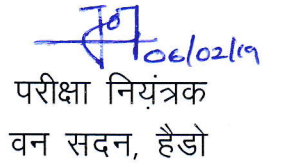 06/02/19
परीक्षा नियंत्रक
वन सदन, हैडो